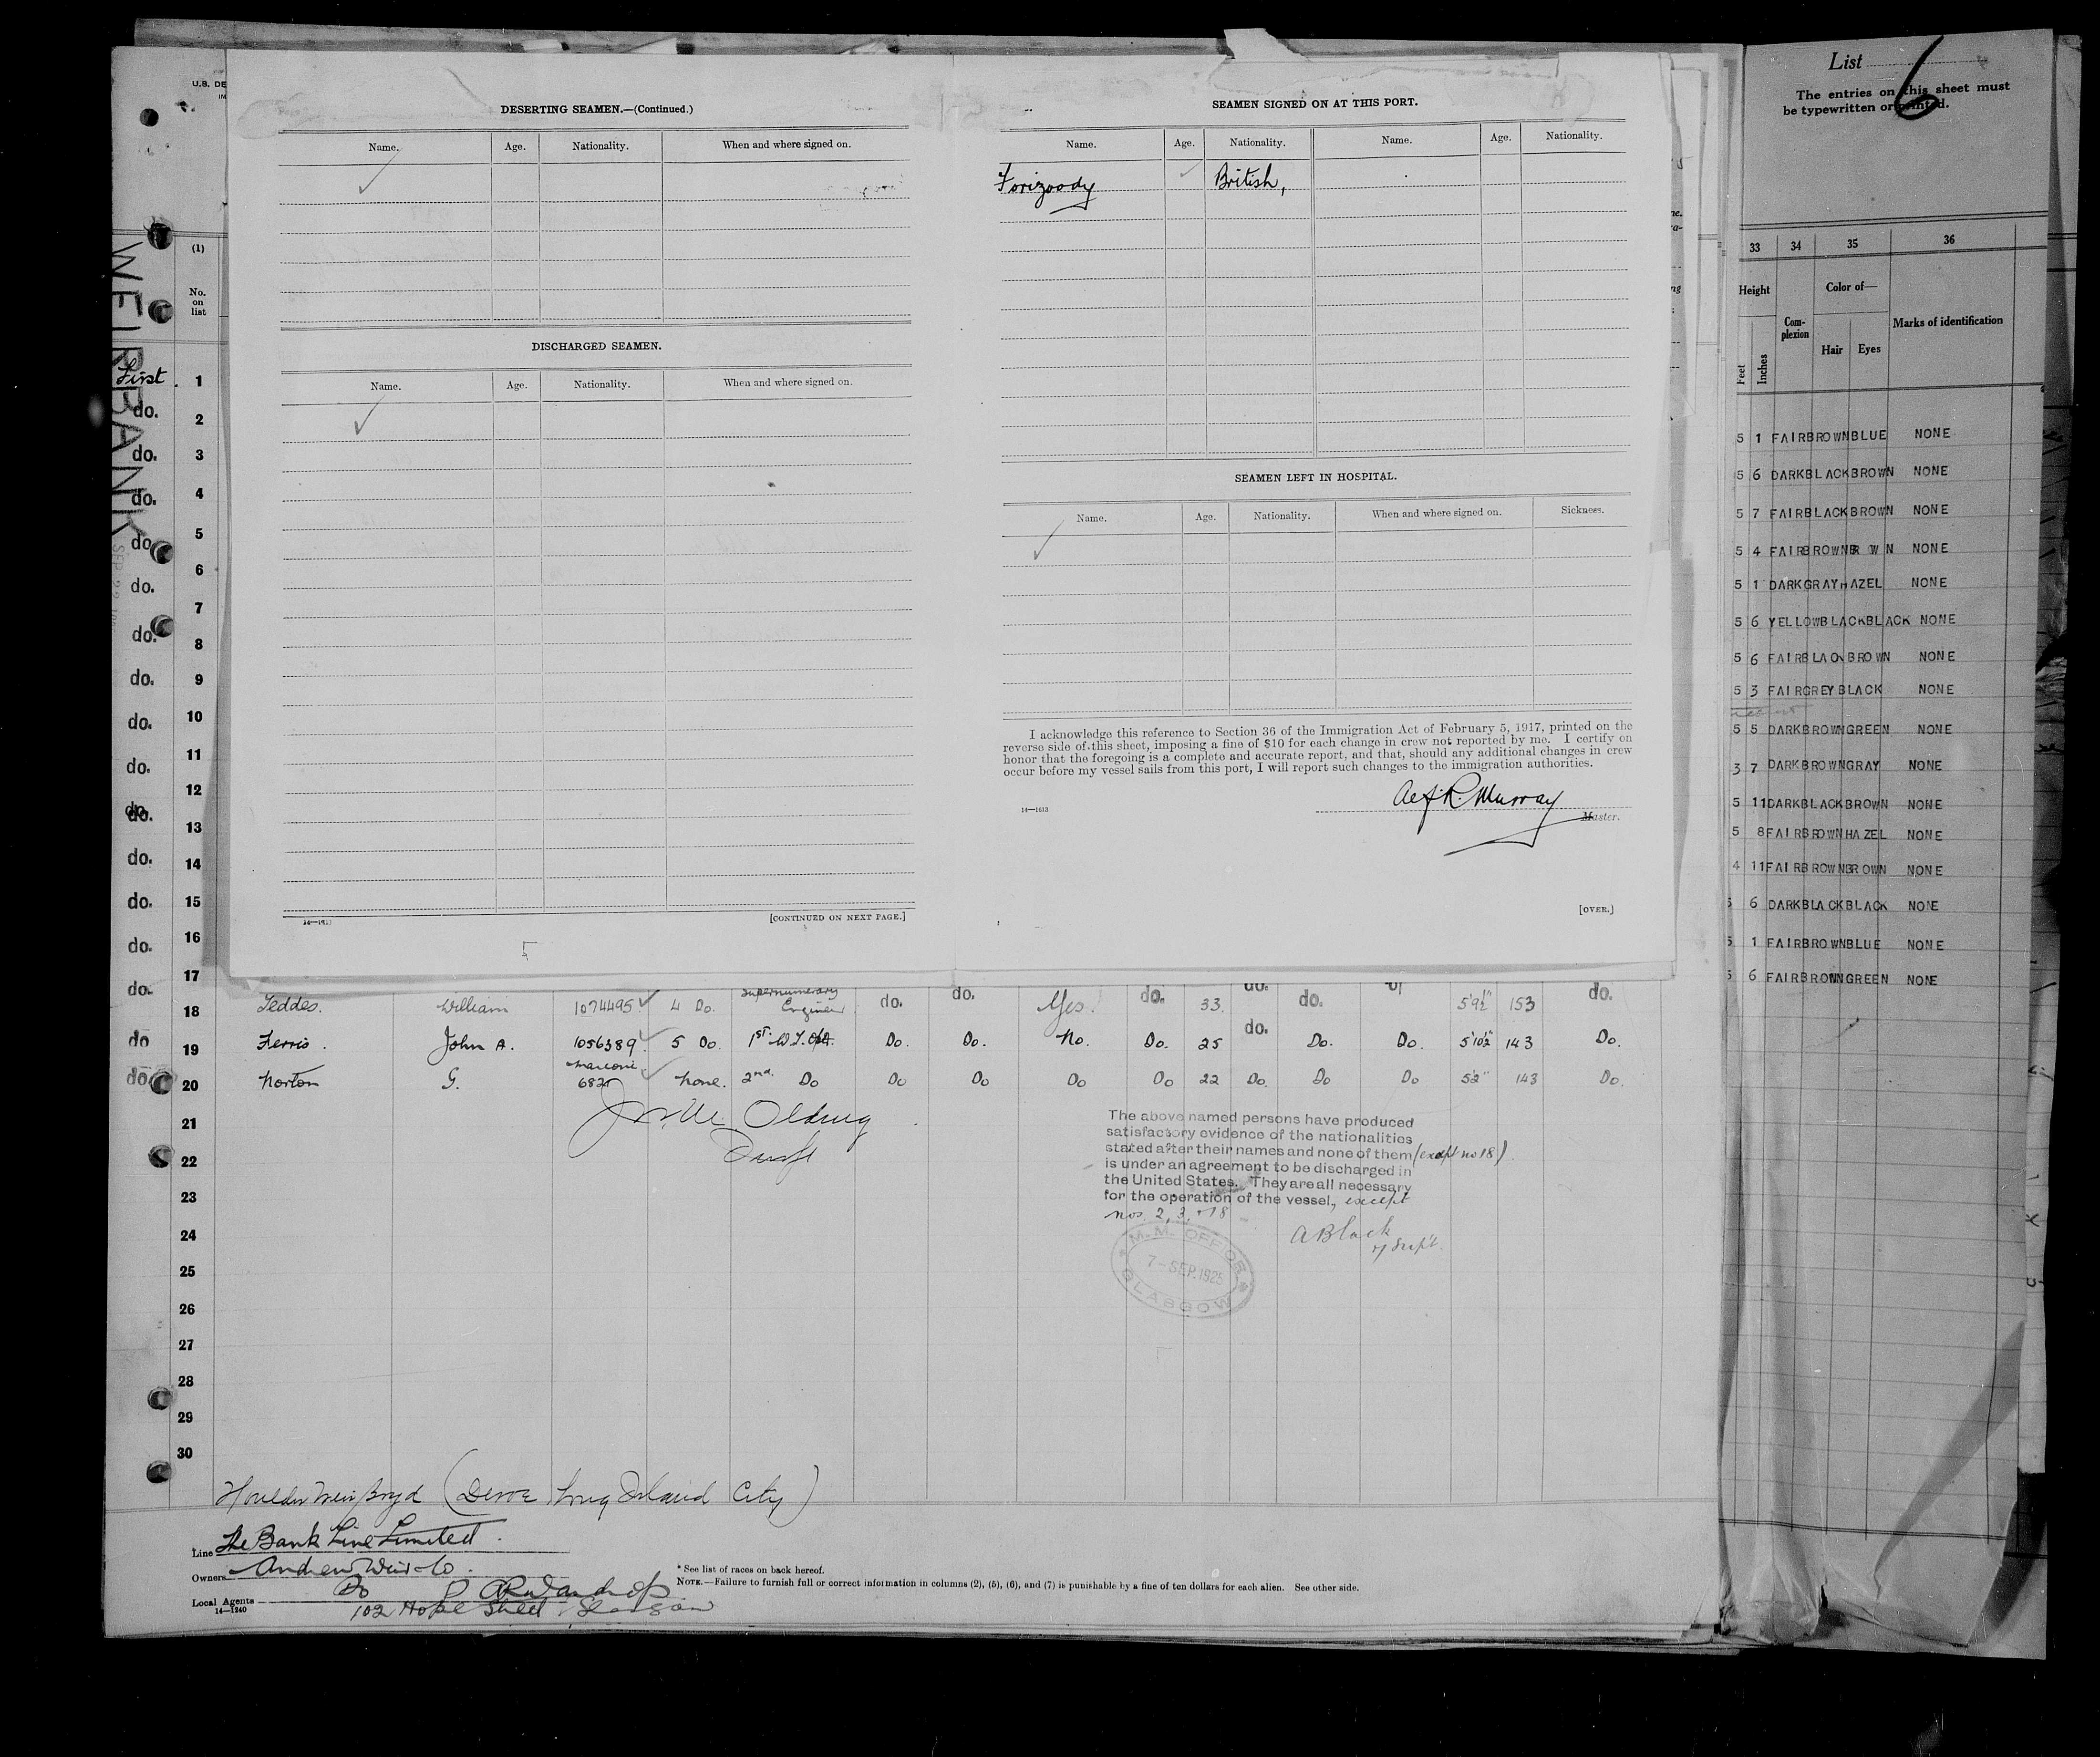 U.S. DE
WEIRBANK
(1)
No.
on
list
First 1
do. 2
do. 3
do. 4
do. 5
do. 6
do. 7
do. 8
do. 9
do. 10
do. 11
do. 12
do. 13
do. 14
do. 15
do. 16
do. 17
DESERTING SEAMEN.—(Continued.)
Name. Age. Nationality. When and where signed on.
DISCHARGED SEAMEN.
Name. Age. Nationality. When and where signed on.
[CONTINUED ON NEXT PAGE.]
SEAMEN SIGNED ON AT THIS PORT.
Name. Age. Nationality. Name. Age. Nationality.
British,
SEAMEN LEFT IN HOSPITAL.
Name. Age. Nationality. When and where signed on. Sickness.
I acknowledge this reference to Section 36 of the Immigration Act of February 5, 1917, printed on the
reverse side of this sheet, imposing a fine of $10 for each change in crew not reported by me. I certify on
honor that the foregoing is a complete and accurate report, and that, should any additional changes in crew
occur before my vessel sails from this port, I will report such changes to the immigration authorities.
Murray
14—1613
Master.
[OVER.]
18 William 1074495 4 Do. Supernumerary Engineer do. do. Yes. do. 33. do. do. 5'9½" 153 do.
do 19 Ferris. John A. 1056389. 5 Do. 1st W.T. Do. Do. No. Do. 25 do. Do. Do. 5'10½" 143 Do.
do 20 Norton G. Marconi 682 None. 2nd Do Do Do Do Do 22 Do. Do Do 5'2" 143 Do.
21
22
23
24
25
26
27
28
29
30
The above named persons have produced
satisfactory evidence of the nationalities
stated after their names and none of them (except no 18)
is under an agreement to be discharged in
the United States. They are all necessary
for the operation of the vessel, except
nos. 2, 3, + 18
A Black
Supt.
M.M. OFFICE
7-SEP.1925
GLASGOW
Houlder Weir Boyd (Devoe Long Island City)
Line The Bank Line Limited.
Owners Andrew Weir & Co.
Local Agents Do
14—1240
102 Hope Street, Glasgow
* See list of races on back hereof.
NOTE.—Failure to furnish full or correct information in columns (2), (5), (6), and (7) is punishable by a fine of ten dollars for each alien. See other side.
List 6
The entries on this sheet must
be typewritten or printed.
33 34 35 36
Height Complexion Color of— Marks of identification
Feet Inches Hair Eyes
5 1 FAIR BROWN BLUE NONE
5 6 DARK BLACK BROWN NONE
5 7 FAIR BLACK BROWN NONE
5 4 FAIR BROWN BR W N NONE
5 1 DARK GRAY HAZEL NONE
5 6 YELLOW BLACK BLACK NONE
5 6 FAIR BLACK BROWN NONE
5 3 FAIR GREY BLACK NONE
5 5 DARK BROWN GREEN NONE
3 7 DARK BROWN GRAY NONE
5 11 DARK BLACK BROWN NONE
5 8 FAIR BROWN HAZEL NONE
4 11 FAIR BROWN BROWN NONE
5 6 DARK BLACK BLACK NONE
5 1 FAIR BROWN BLUE NONE
5 6 FAIR BROWN GREEN NONE